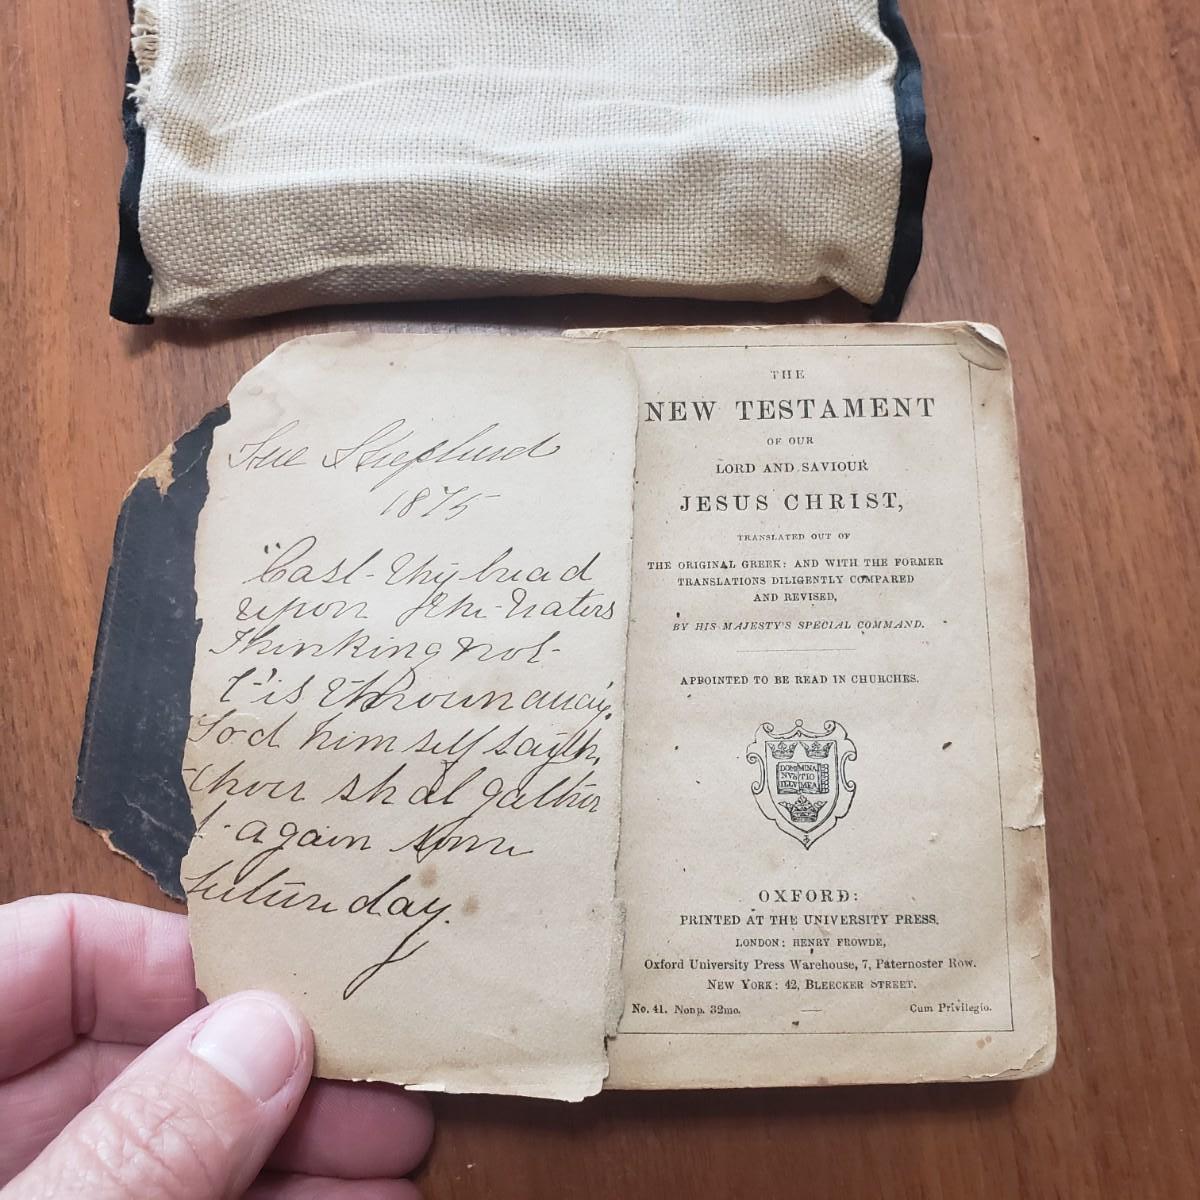 Sue Shepherd
1875
"Cast thy bread
upon the waters
Thinking not
t'is thrown away,
God himself sayth,
thou shal gather
again some
future day.
THE
NEW TESTAMENT
OF OUR
LORD AND SAVIOUR
JESUS CHRIST,
TRANSLATED OUT OF
THE ORIGINAL GREEK: AND WITH THE FORMER
TRANSLATIONS DILIGENTLY COMPARED
AND REVISED,
BY HIS MAJESTY'S SPECIAL COMMAND.
APPOINTED TO BE READ IN CHURCHES.
DOMINA
NVSTIO
ILLVMEA
OXFORD:
PRINTED AT THE UNIVERSITY PRESS.
LONDON: HENRY FROWDE,
Oxford University Press Warehouse, 7, Paternoster Row.
NEW YORK: 42, BLEECKER STREET.
No. 41. Nonp. 32mo.
Cum Privilegio.